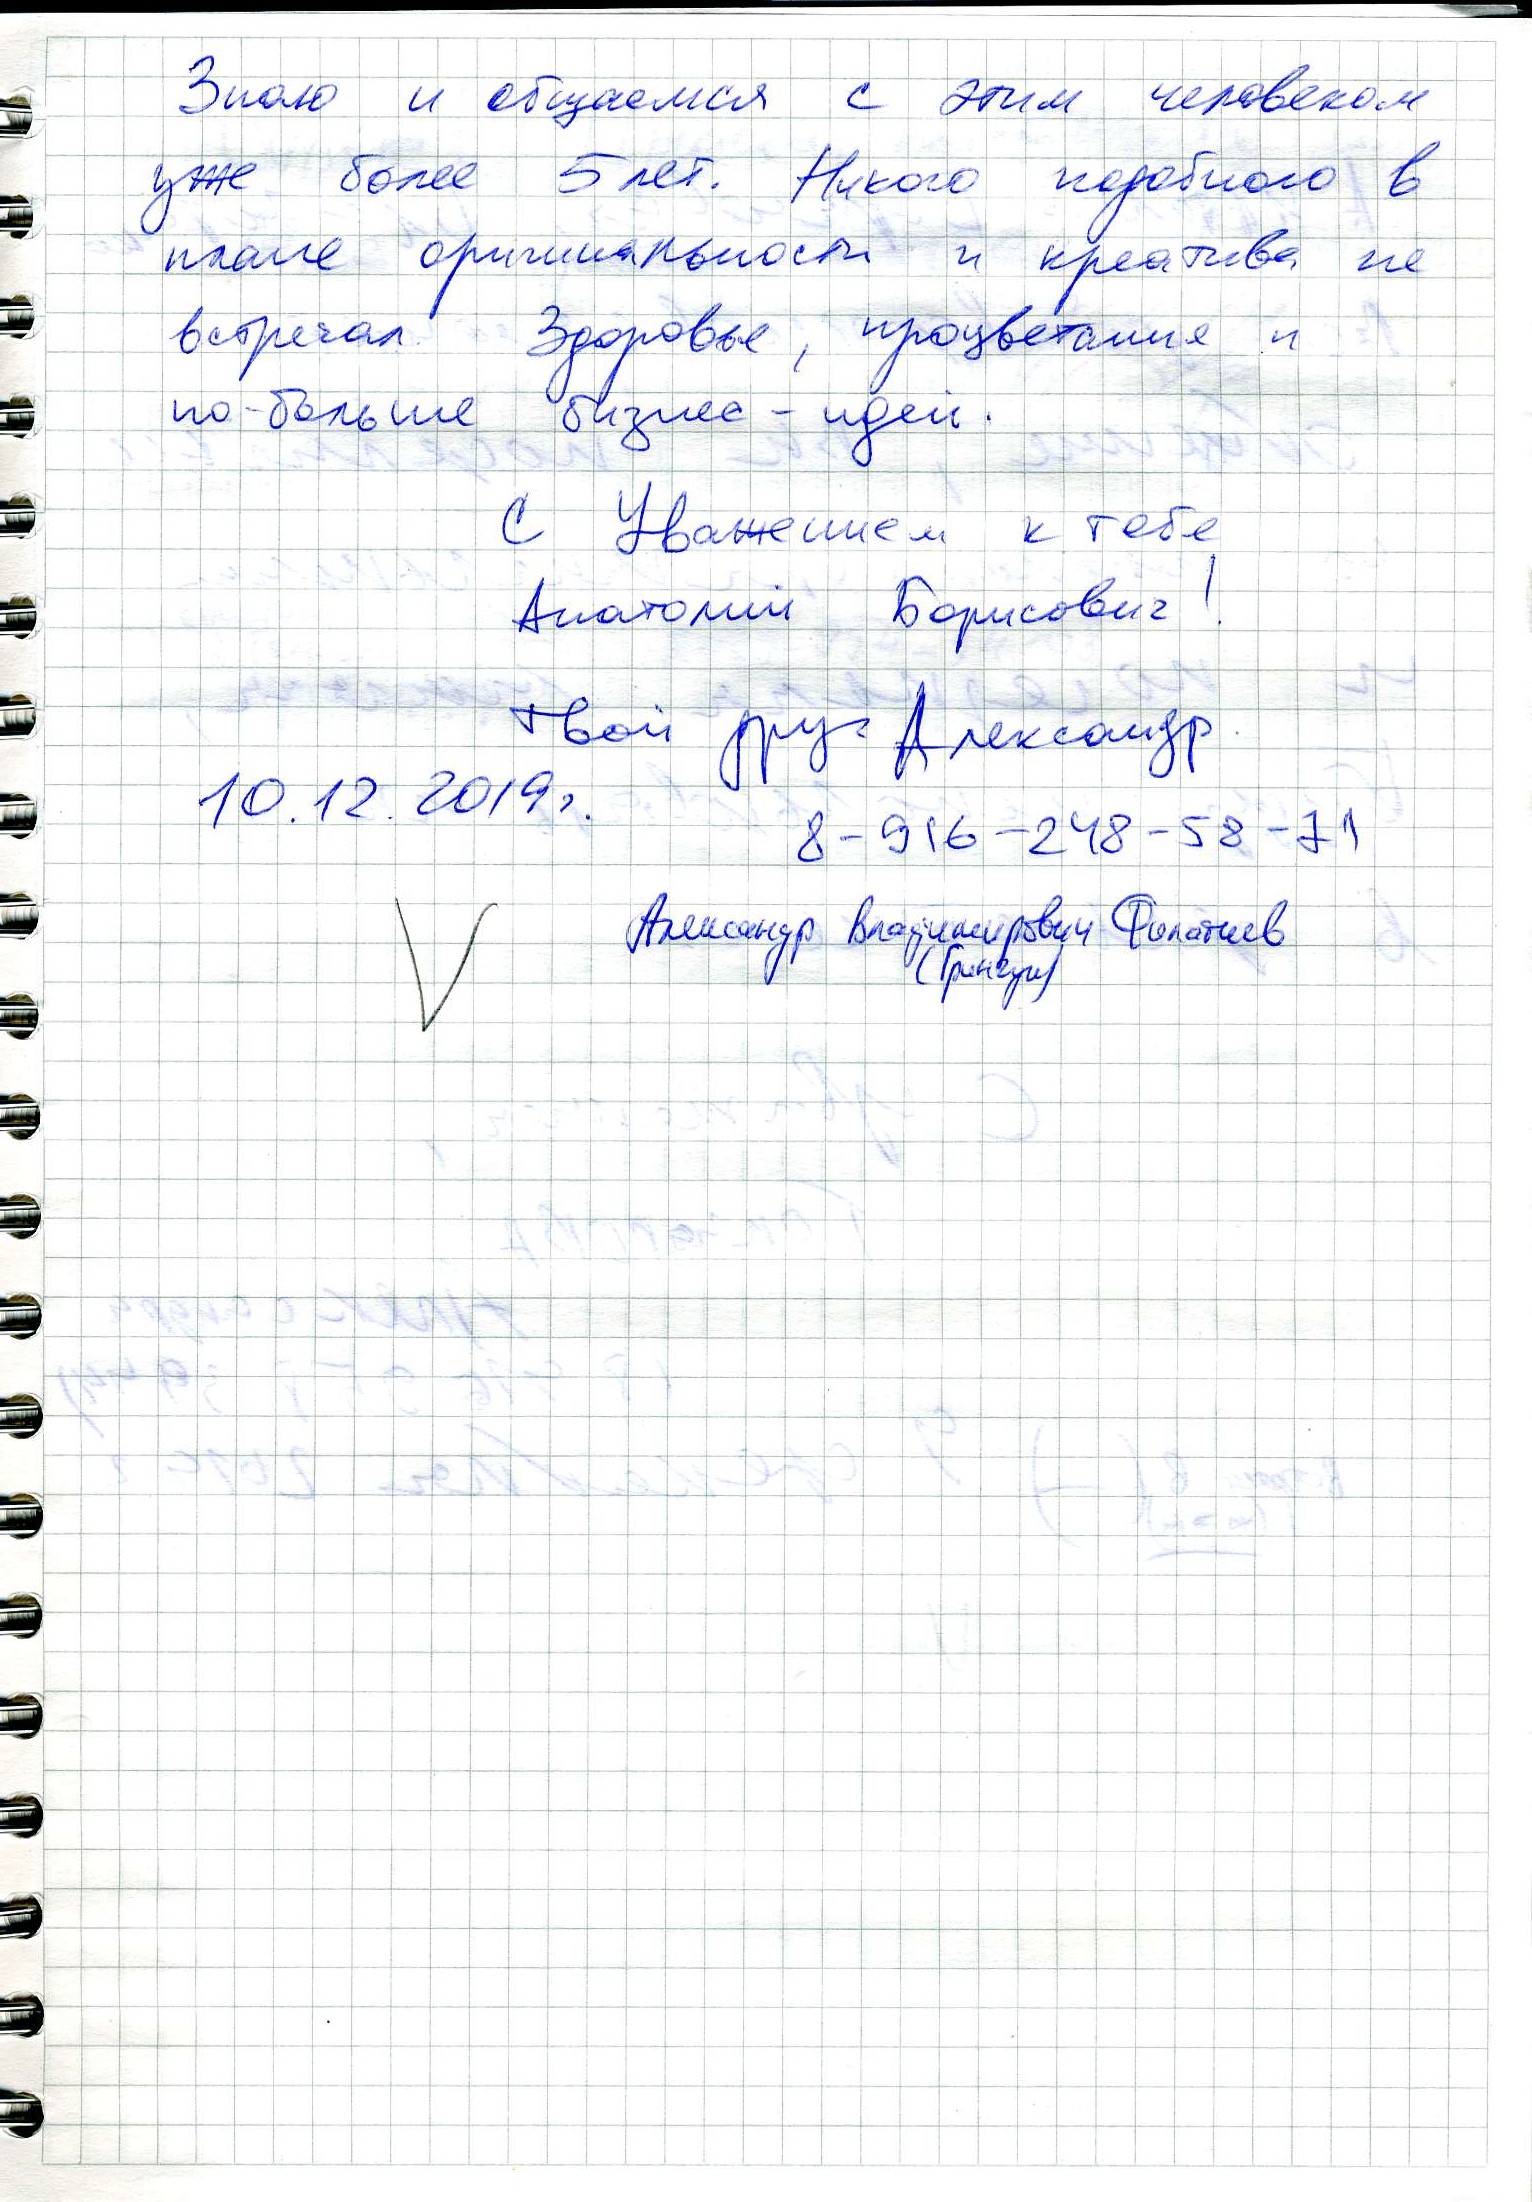 Знаю и общаемся с этим человеком
уже более 5 лет. Никого подобного в
плане оригинальности и креатива не
встречал. Здоровье, процветания и
по-больше бизнес-идей.
С Уважением к тебе
Анатолий Борисович!
Твой друг Александр.
10.12.2019г.
8-916-248-58-71
Александр Владимирович Филатчев